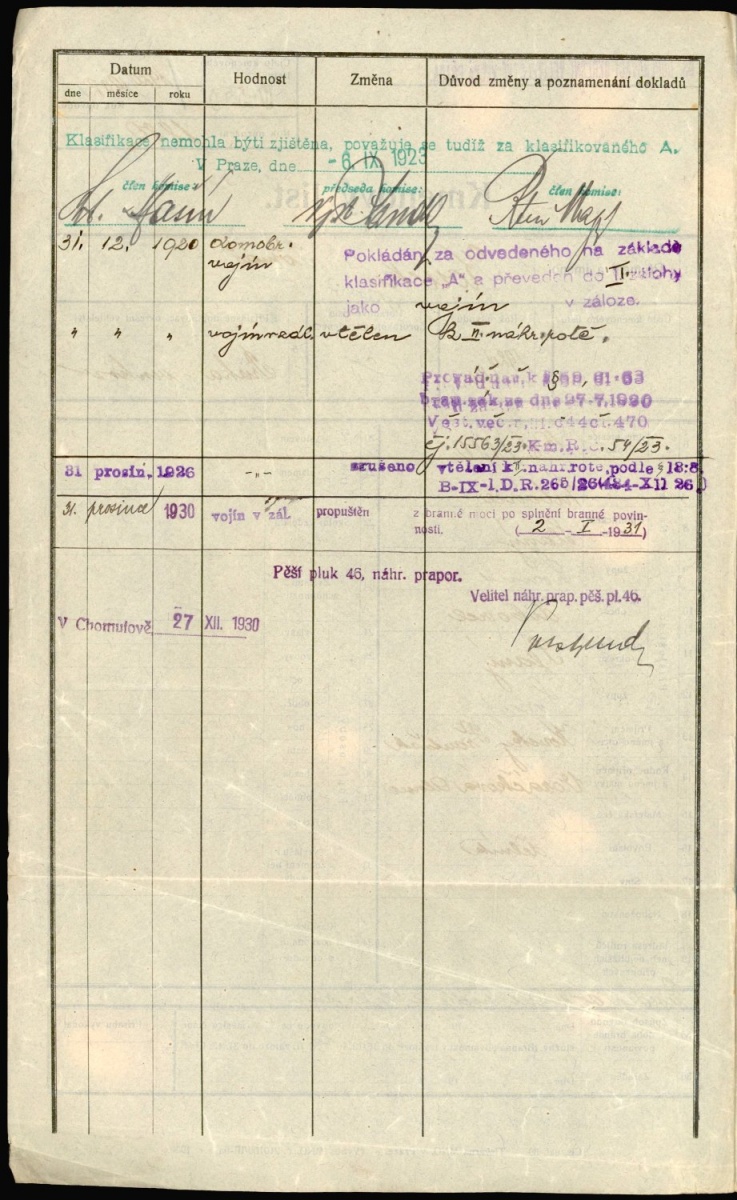 Datum Hodnost Změna Důvod změny a poznamenání dokladů
dne měsíce roku
Klasifikace nemohla býti zjištěna, považuje se tudíž za klasifikovaného A.
V Praze, dne - 6. IX. 1923
člen komise: předseda komise: člen komise:
31. 12. 1920 domobr. vojín
Pokládán za odvedeného na základě
klasifikace „A" a převeden do II. zálohy
jako vojín v záloze.
" " " vojín vtělen k II. náhr. rotě.
Provád. nař. k §
bran. zák. ze dne 27.7.1920
Věst. věc. r.
čj. 15563/23. K.m.R.Č. 54/23.
31 prosin. 1926 -„- zrušeno vtělení k II. náhr. rotě, podle § 18:8.
B-IX-1, D.R.
31. prosince 1930 vojín v zál. propuštěn z branné moci po splnění branné povin-
nosti. ( 2 - I - 1931 )
Pěší pluk 46, náhr. prapor.
Velitel náhr. prap. pěš. pl. 46.
V Chomutově 27 XII. 1930